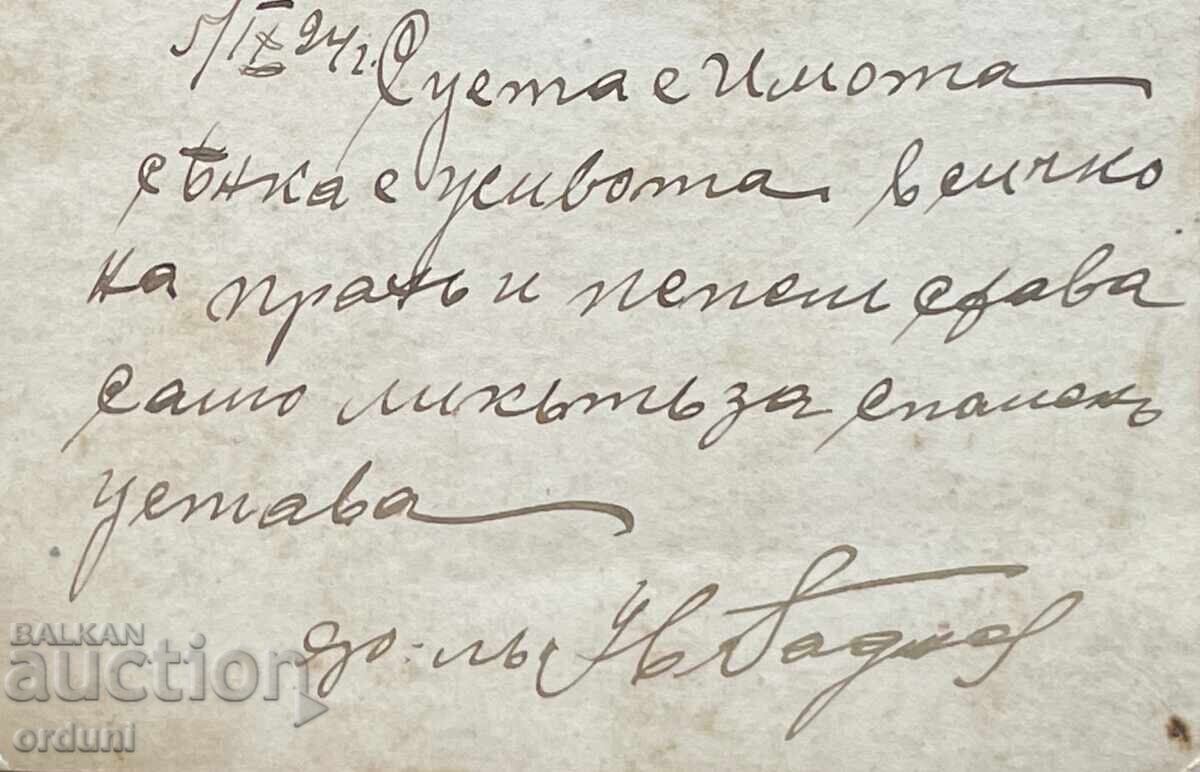 5/IX 924 г. Суета е Имота
сѣнка е живота всичко
на прахъ и пепелъ става
само ликътъ за споменъ
устава
BALKAN
auction
orduni